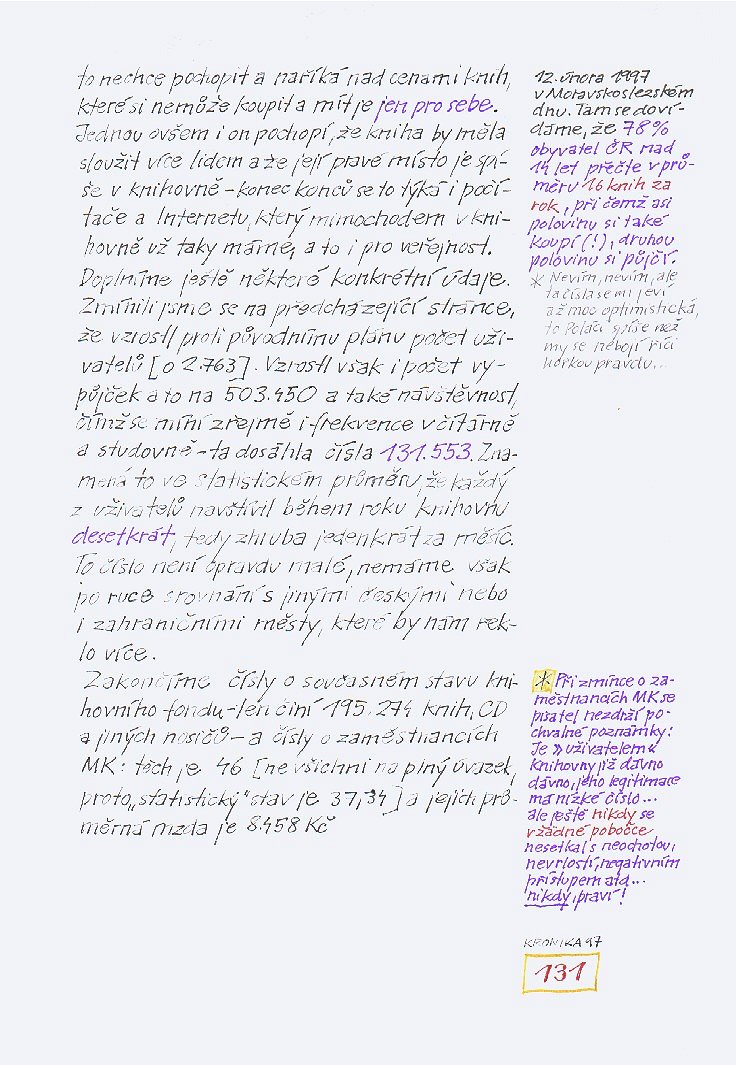 to nechce pochopit a naříká nad cenami knih,
které si nemůže koupit a mít je jen pro sebe.
Jednou ovšem i on pochopí, že kniha by měla
sloužit více lidem a že její pravé místo je spí-
še v knihovně – konec konců se to týká i počí-
tače a Internetu, který mimochodem v kni-
hovně už taky máme, a to i pro veřejnost.
Doplníme ještě některé konkrétní údaje.
Zmínili jsme se na předcházející stránce,
že vzrostl proti původnímu plánu počet uži-
vatelů [o 2.763]. Vzrostl však i počet vý-
půjček a to na 503.450 a také návštěvnost,
čímž se míní zřejmě i frekvence v čítárně
a studovně – ta dosáhla čísla 131.553. Zna-
mená to ve statistickém průměru, že každý
z uživatelů navštívil během roku knihovnu
desetkrát, tedy zhruba jedenkrát za měsíc.
To číslo není opravdu malé, nemáme však
po ruce srovnání s jinými českými nebo
i zahraničními městy, které by nám řek-
lo více.
Zakončíme čísly o současném stavu kni-
hovního fondu – ten činí 195.274 knih, CD
a jiných nosičů – a čísly o zaměstnancích
MK: těch je 46 [ne všichni na plný úvazek,
proto „statistický“ stav je 37,34] a jejich prů-
měrná mzda je 8.458 Kč
12. února 1997
v Moravskoslezském
dnu. Tam se doví-
dáme, že 78%
obyvatel ČR nad
14 let přečte v prů-
měru 16 knih za
rok, při čemž asi
polovinu si také
koupí (!), druhou
polovinu si půjčí.
* Nevím, nevím, ale
ta čísla se mi jeví
až moc optimistická,
to Poláci spíše než
my se nebojí říci
hořkou pravdu...
* Při zmínce o za-
městnancích MK se
pisatel nezdrží po-
chvalné poznámky:
Je »uživatelem«
knihovny již dávno
dávno, jeho legitimace
má nízké číslo...
ale ještě nikdy se
v žádné pobočce
nesetkal s neochotou,
nevrlostí, negativním
přístupem atd...
nikdy, praví!
KRONIKA 97
131